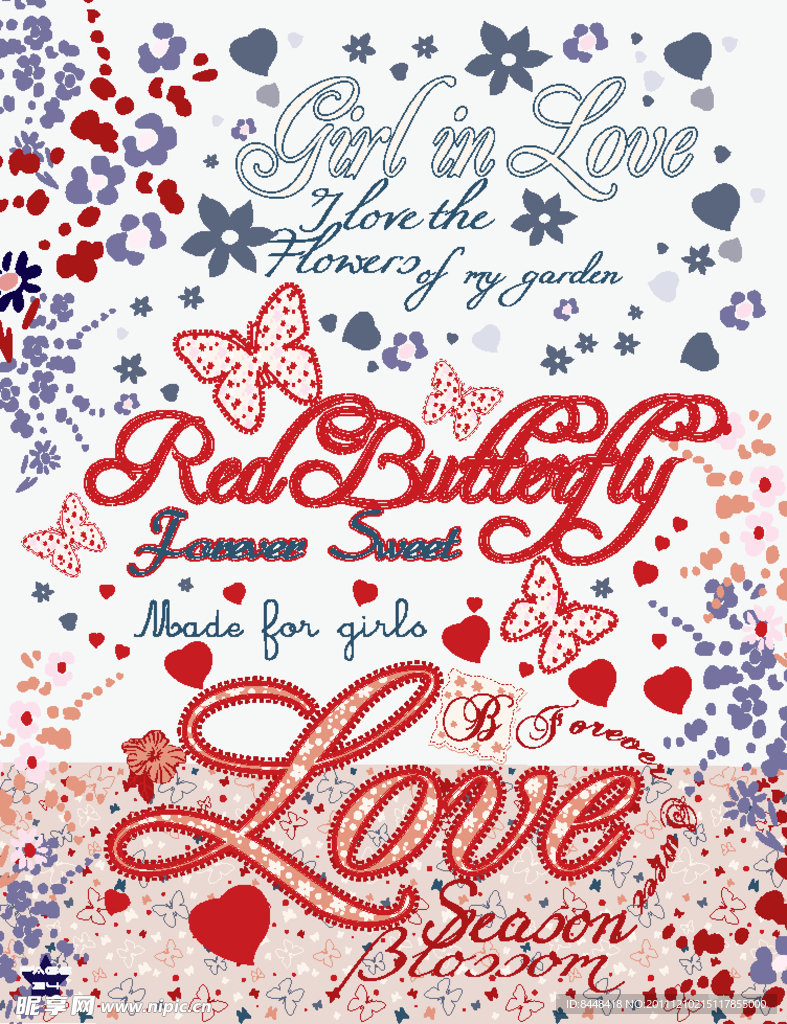 Girl in Love
I love the
Flowers of my garden
Red Butterfly
Forever Sweet
Made for girls
B Forever
Love
Sweet
Season
Blossom
昵享网 www.nipic.cn
ID:8448418 NO:20111210215117855000